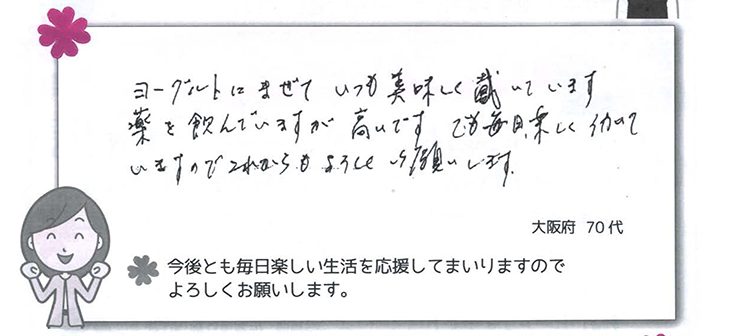 ヨーグルトにまぜて いつも美味しく戴いています
薬を飲んでいますが 高いです でも毎日楽しく
いますのでこれからもよろしくお願いします。
大阪府 70代
今後とも毎日楽しい生活を応援してまいりますので
よろしくお願いします。